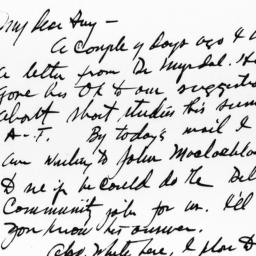 My dear Guy —
A couple of days ago I
a letter from Dr Myrdal. He
gave his OK to our suggestion
about short studies this sum
A-T. By today's mail I
am writing to John Maclachlan
to see if he could do the
Community job for us. I'll
you know his answer.
White here, I plan to